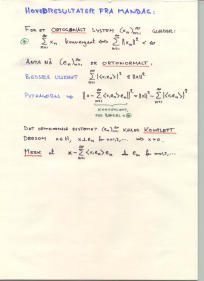 HOVEDRESULTATER FRA MANDAG:
FOR ET ORTOGONALT SYSTEM (xₙ)ₙ₌₁^∞ GJELDER:
∑ₙ₌₁^∞ xₙ konvergent ⇔ ∑ₙ₌₁^∞ ‖xₙ‖² < ∞
ANTA NÅ (eₙ)ₙ₌₁^∞ ER ORTONORMALT:
BESSELS ULIKHET ∑ₙ₌₁^∞ |⟨x,eₙ⟩|² ≤ ‖x‖²
PYTHAGORAS ⇒ ‖x − ∑ₙ₌₁^∞ ⟨x,eₙ⟩eₙ‖² = ‖x‖² − ∑ₙ₌₁^∞ |⟨x,eₙ⟩|²
KONVERGENT,
DET ORTONORMALE SYSTEMET (eₙ)ₙ₌₁^∞ KALLES KOMPLETT
DERSOM x ∈ H, x ⊥ eₙ for n=1,2,... ⇒ x = 0.
MERK at x − ∑ₙ₌₁^∞ ⟨x,eₙ⟩eₙ ⊥ eₘ for m=1,2,...